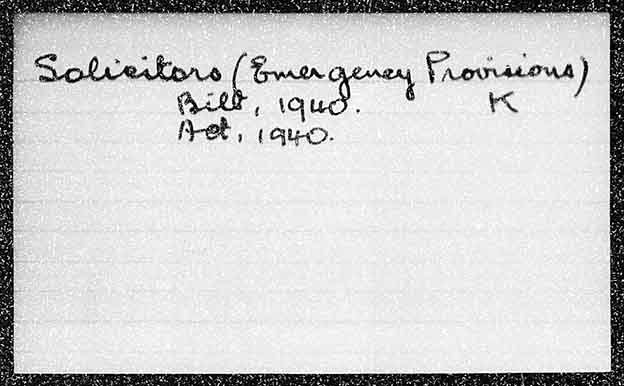 Solicitors (Emergency Provisions)
Bill, 1940. K
Act, 1940.